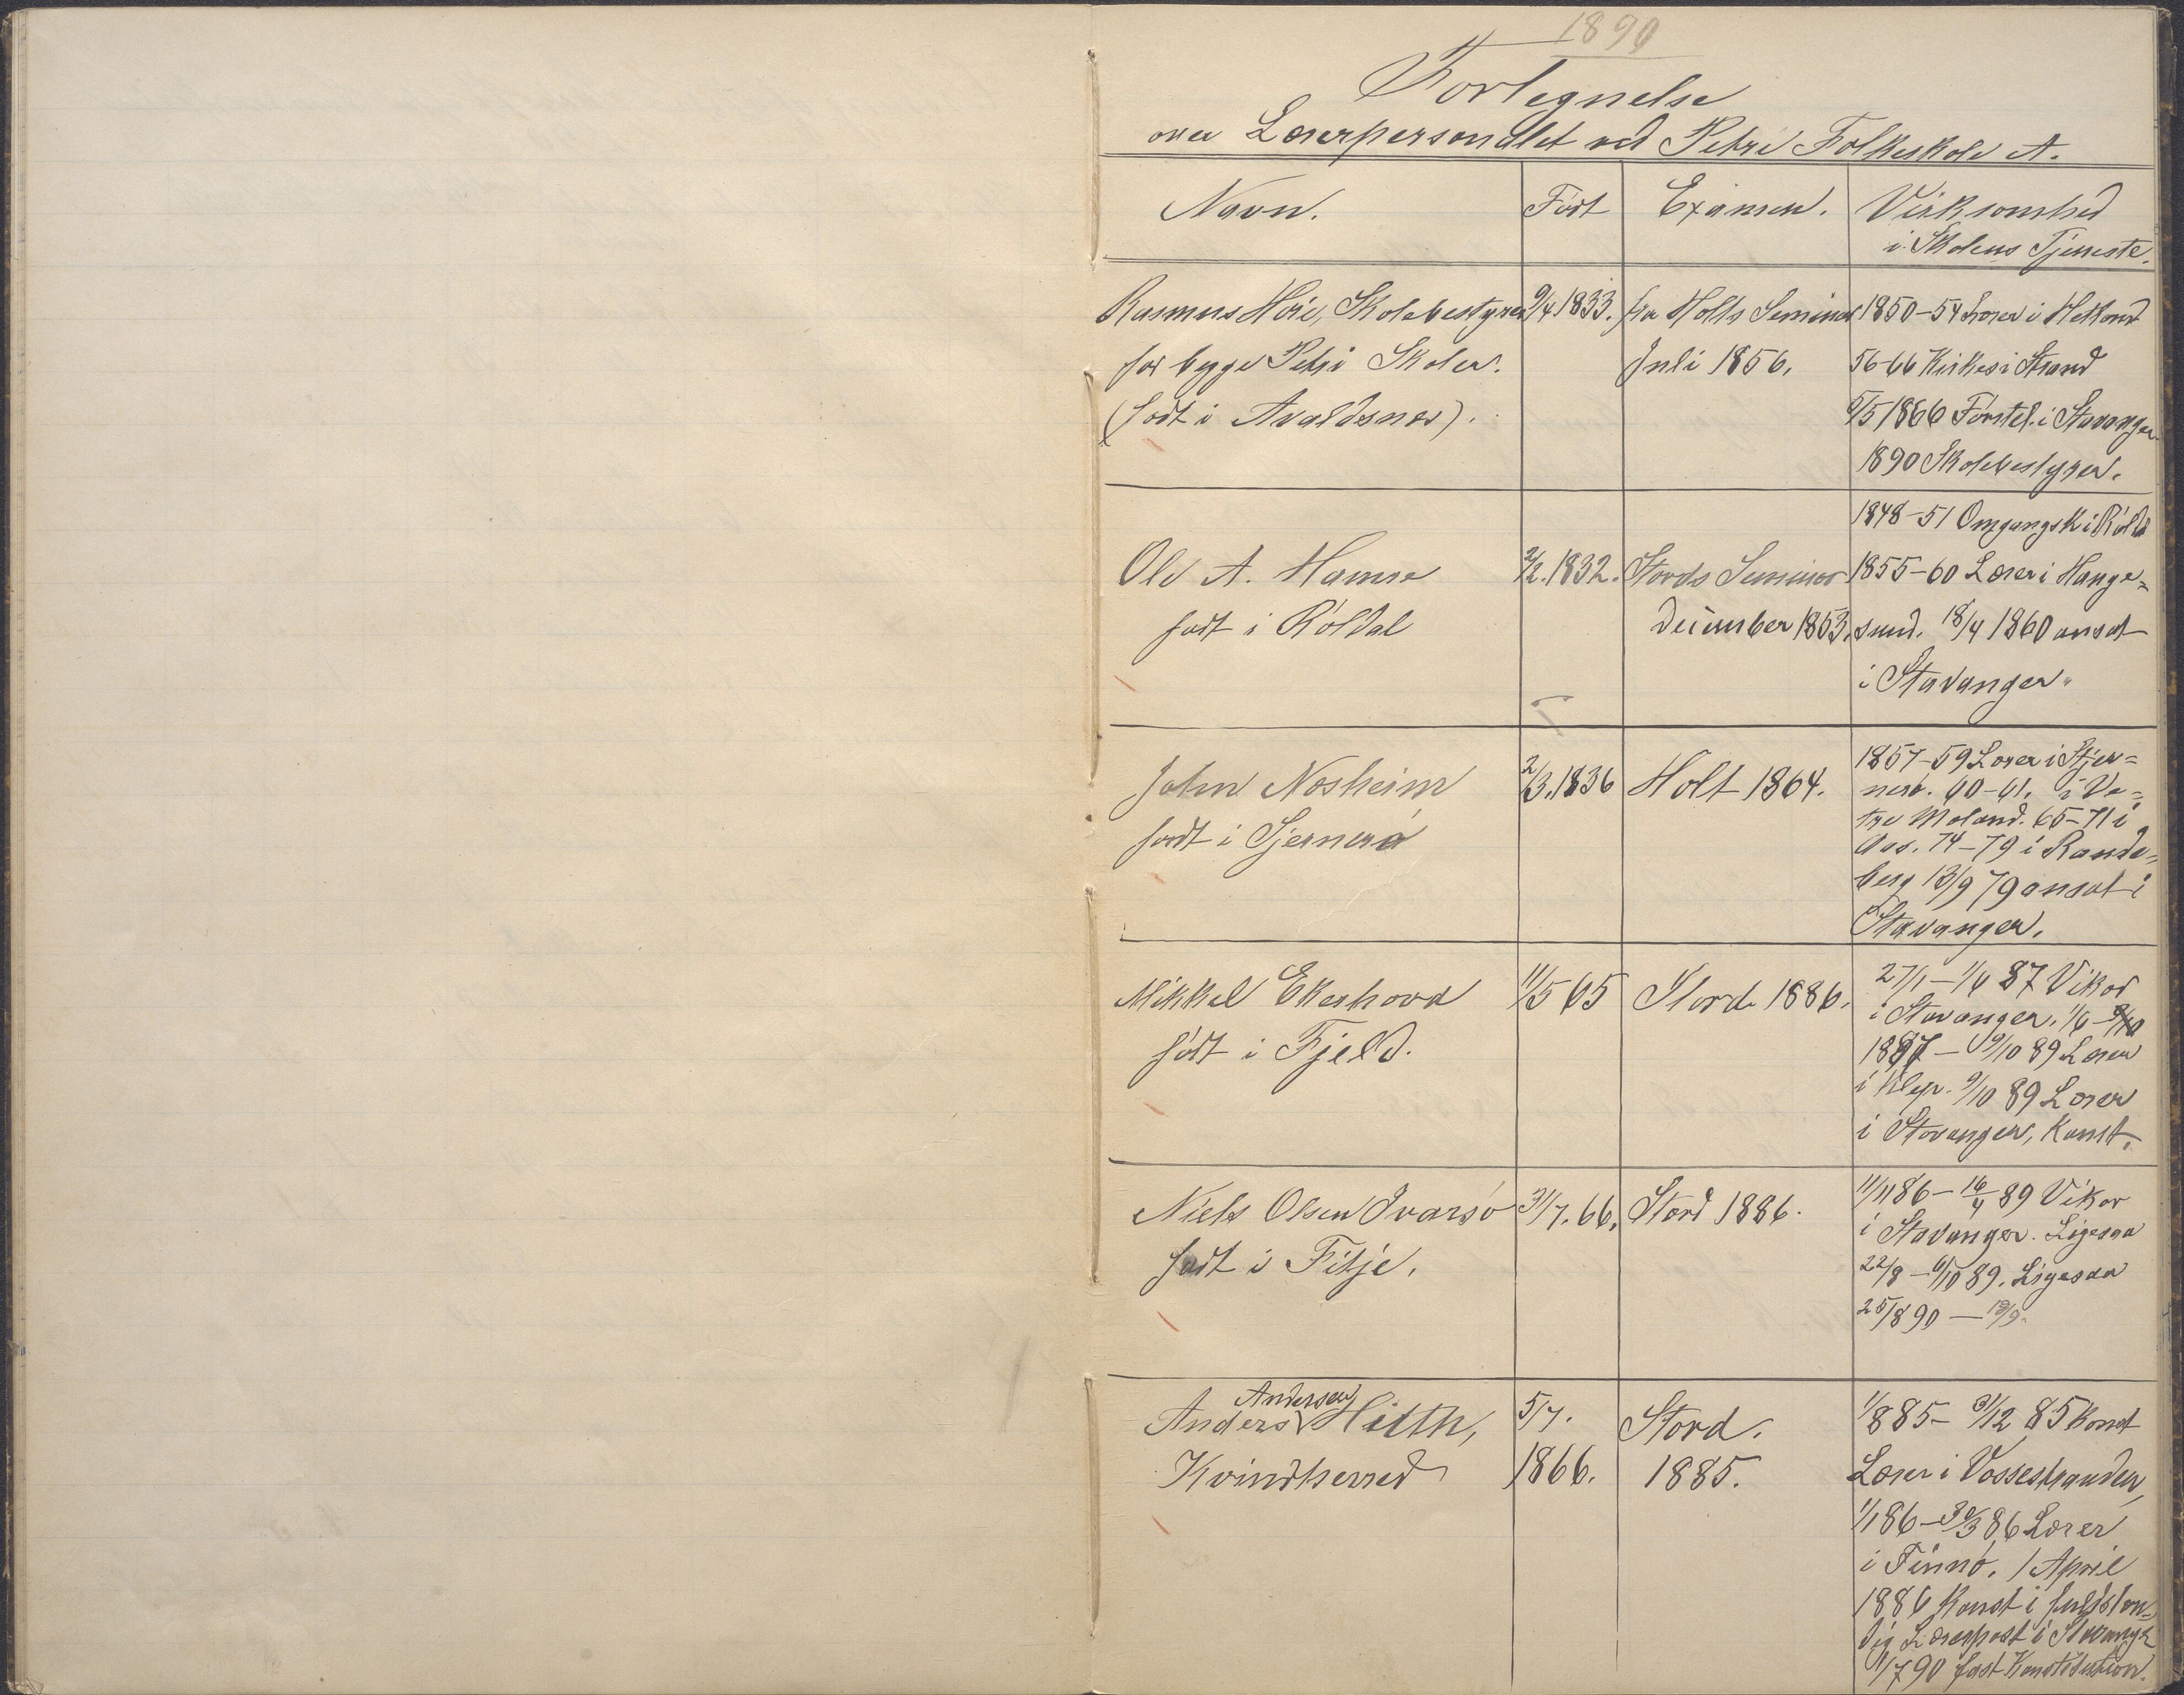 1890
Fortegnelse
over Lærerpersonalet ved Petri Folkeskole A.
Navn. Født Examen. Virksomhed
i Skolens Tjeneste.
Rasmus Høie, Skolebestyrer 9/4 1833. fra Holts Seminar 1850-54 Lærer i Hetland
for begge Petri Skoler. Juli 1856. 56-66 Kirkes. i Strand
(født i Avaldsnes). /5 1866 Førstel. i Stavanger
1890 Skolebestyrer.
1848-51 Omgangsk. i Røldal
Ole A. Hamre 2/2. 1832. Stords Seminar 1855-60 Lærer i Hauge=
født i Røldal December 1853. sund. 18/4 1860 ansat
i Stavanger.
1857-59 Lærer i Stjer=
John Nesheim 2/3. 1836 Holt 1864. nerø. 60-61. i Ve=
født i Sjernerø tre Moland. 65-71 i
Aas. 74-79 i Rande=
berg 13/9 79 ansat i
Stavanger.
Mikkel Ekerhovd 11/5 65 Stord 1886. 27/1-1/4 87 Vikar
i Stavanger. 1/6
født i Fjeld. 1887 - 9/10 89 Lærer
i Klep. 9/10 89 Lærer
i Stavanger, Konst.
Niels Olsen Ivarsø 31/7. 66. Stord 1886. 11/11 86 - 16/4 89 Vikar
i Stavanger. Ligesaa
født i Fitje. 22/8 - 6/10 89. Ligesaa
25/8 90 - 19/9.
Andersen
Anders Hitth, 5/7. Stord. 1/8 85 - 31/12 85 konst
Kvindherred 1866. 1885. Lærer i Vossestranden,
1/1 86 - 30/3 86 Lærer
i Finnø. 1 April
1886 Konst i fuldstæn=
dig Lærerpost i Stavanger
1/7 90 fast Konstitution.